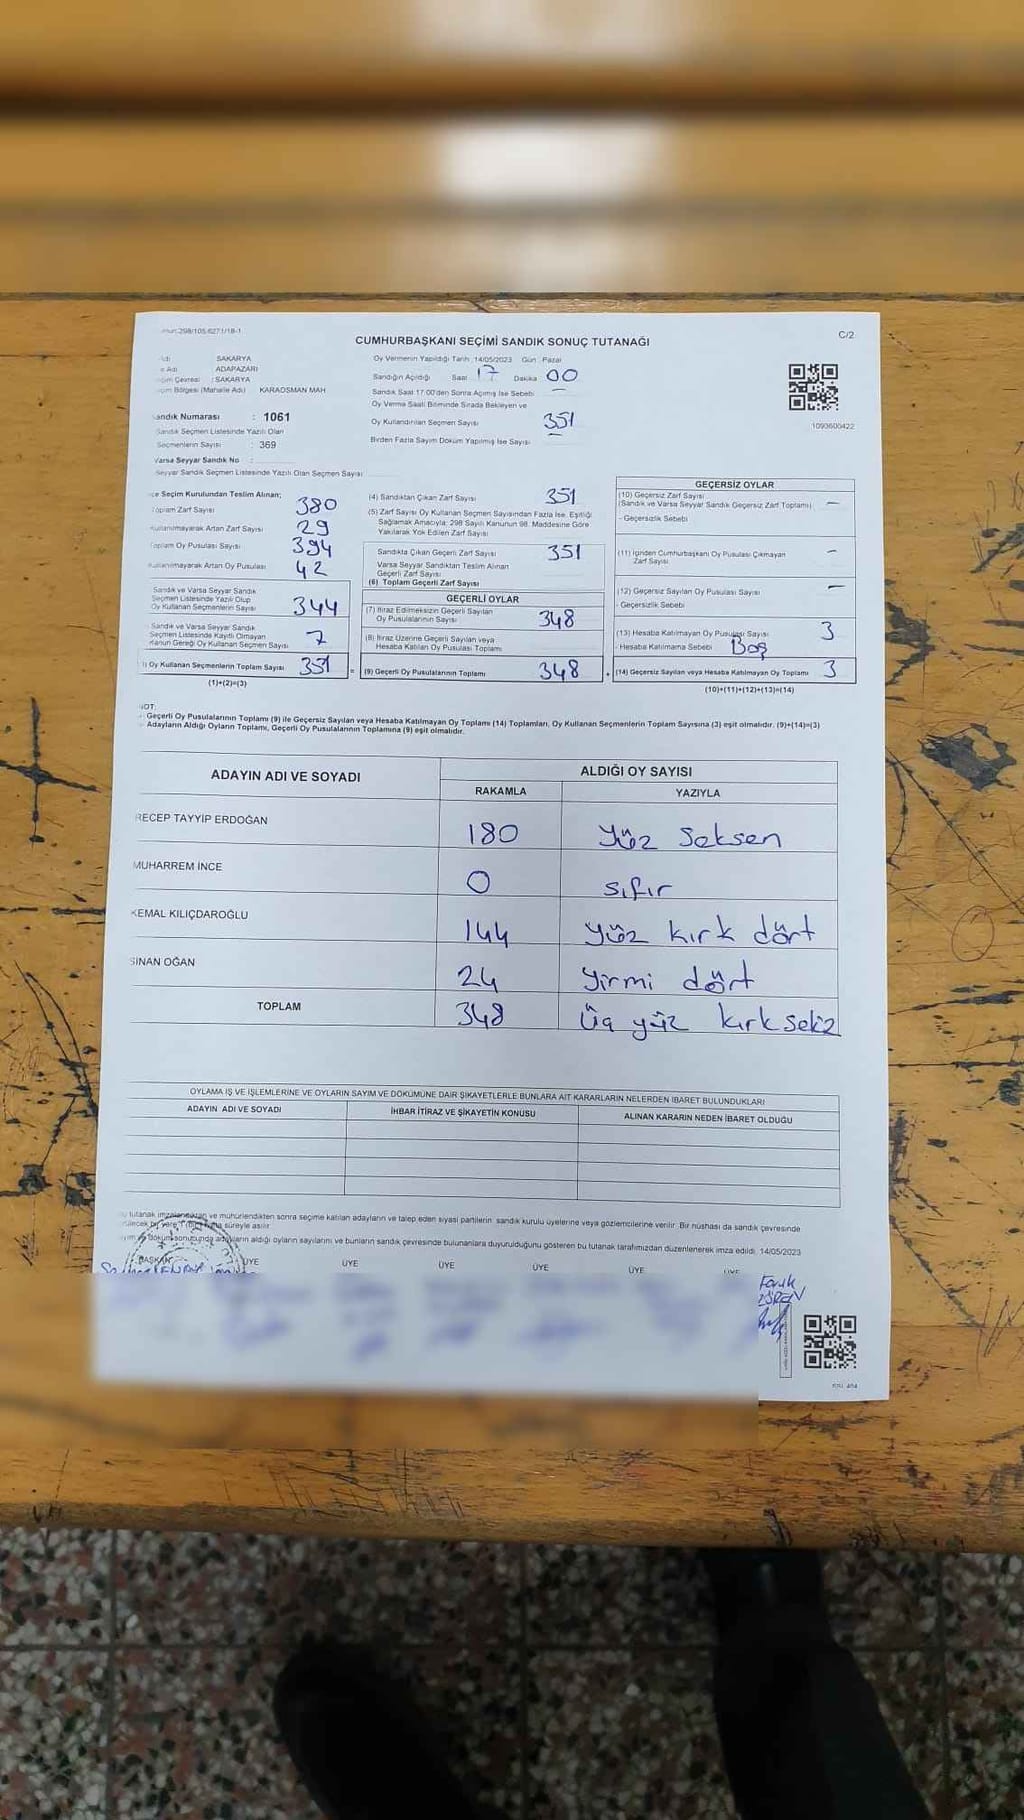 298/105/6271/18-1
C/2
CUMHURBAŞKANI SEÇİMİ SANDIK SONUÇ TUTANAĞI
SAKARYA
Adı ADAPAZARI
Çevresi : SAKARYA
Bölgesi (Mahalle Adı) KARAOSMAN MAH
Sandık Numarası : 1061
Sandık Seçmen Listesinde Yazılı Olan
Seçmenlerin Sayısı : 369
Varsa Seyyar Sandık No :
Seyyar Sandık Seçmen Listesinde Yazılı Olan Seçmen Sayısı
Oy Vermenin Yapıldığı Tarih :14/05/2023 Gün Pazar
Sandığın Açıldığı Saat 17 Dakika 00
Sandık Saat 17:00'den Sonra Açımış İse Sebebi —
Oy Verme Saati Bitiminde Sırada Bekleyen ve
Oy Kullandırılan Seçmen Sayısı 351
Birden Fazla Sayım Döküm Yapılmış İse Sayısı —
1093600422
Seçim Kurulundan Teslim Alınan;
Toplam Zarf Sayısı 380
Kullanılmayarak Artan Zarf Sayısı 29
Toplam Oy Pusulası Sayısı 394
Kullanılmayarak Artan Oy Pusulası 42
Sandık ve Varsa Seyyar Sandık
Seçmen Listesinde Yazılı Olup
Oy Kullanan Seçmenlerin Sayısı 344
Sandık ve Varsa Seyyar Sandık
Seçmen Listesinde Kayıtlı Olmayan
Kanun Gereği Oy Kullanan Seçmen Sayısı 7
Oy Kullanan Seçmenlerin Toplam Sayısı 351 =
(1)+(2)=(3)
(4) Sandıktan Çıkan Zarf Sayısı 351
(5) Zarf Sayısı Oy Kullanan Seçmen Sayısından Fazla İse, Eşitliği
Sağlamak Amacıyla; 298 Sayılı Kanunun 98. Maddesine Göre
Yakılarak Yok Edilen Zarf Sayısı
Sandıkta Çıkan Geçerli Zarf Sayısı 351
Varsa Seyyar Sandıktan Teslim Alınan
Geçerli Zarf Sayısı
(6) Toplam Geçerli Zarf Sayısı
GEÇERLİ OYLAR
(7) İtiraz Edilmeksizin Geçerli Sayılan
Oy Pusulalarının Sayısı 348
(8) İtiraz Üzerine Geçerli Sayılan veya
Hesaba Katılan Oy Pusulası Toplamı
(9) Geçerli Oy Pusulalarının Toplamı 348 +
GEÇERSİZ OYLAR
(10) Geçersiz Zarf Sayısı
(Sandık ve Varsa Seyyar Sandık Geçersiz Zarf Toplamı) —
- Geçersizlik Sebebi
(11) İçinden Cumhurbaşkanı Oy Pusulası Çıkmayan
Zarf Sayısı —
(12) Geçersiz Sayılan Oy Pusulası Sayısı —
- Geçersizlik Sebebi
(13) Hesaba Katılmayan Oy Pusulası Sayısı 3
- Hesaba Katılmama Sebebi Boş
(14) Geçersiz Sayılan veya Hesaba Katılmayan Oy Toplamı 3
(10)+(11)+(12)+(13)=(14)
NOT:
Geçerli Oy Pusulalarının Toplamı (9) ile Geçersiz Sayılan veya Hesaba Katılmayan Oy Toplamı (14) Toplamları, Oy Kullanan Seçmenlerin Toplam Sayısına (3) eşit olmalıdır. (9)+(14)=(3)
Adayların Aldığı Oyların Toplamı, Geçerli Oy Pusulalarının Toplamına (9) eşit olmalıdır.
ADAYIN ADI VE SOYADI ALDIĞI OY SAYISI
RAKAMLA YAZIYLA
RECEP TAYYİP ERDOĞAN 180 Yüz Seksen
MUHARREM İNCE 0 sıfır
KEMAL KILIÇDAROĞLU 144 yüz kırk dört
SİNAN OĞAN 24 yirmi dört
TOPLAM 348 Üç yüz kırk sekiz
OYLAMA İŞ VE İŞLEMLERİNE VE OYLARIN SAYIM VE DÖKÜMÜNE DAİR ŞİKAYETLERLE BUNLARA AİT KARARLARIN NELERDEN İBARET BULUNDUKLARI
ADAYIN ADI VE SOYADI İHBAR İTİRAZ VE ŞİKAYETİN KONUSU ALINAN KARARIN NEDEN İBARET OLDUĞU
tutanak imzalandıktan ve mühürlendikten sonra seçime katılan adayların ve talep eden siyasi partilerin sandık kurulu üyelerine veya gözlemcilerine verilir. Bir nüshası da sandık çevresinde
süreyle asılır.
sonucunda adayların aldığı oyların sayılarını ve bunların sandık çevresinde bulunanlara duyurulduğunu gösteren bu tutanak tarafımızdan düzenlenerek imza edildi. 14/05/2023
BAŞKAN ÜYE ÜYE ÜYE ÜYE ÜYE ÜYE
Faruk